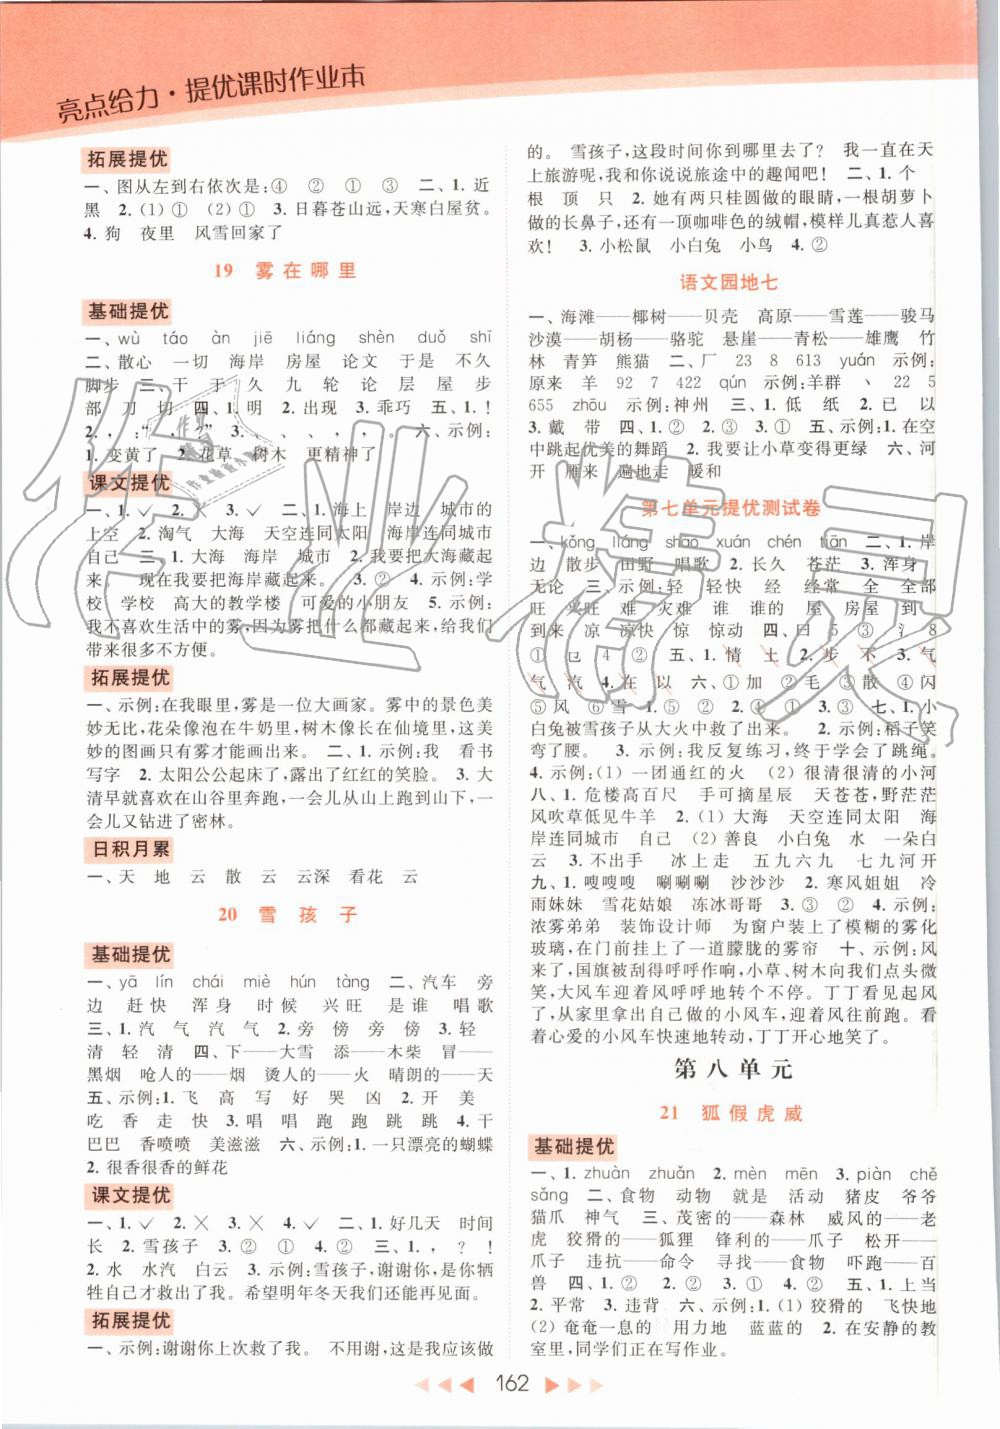 亮点给力·提优课时作业本
拓展提优
一、图从左到右依次是:④ ② ① ③ 二、1. 近
黑 2. (1) ① (2) ① 3. 日暮苍山远,天寒白屋贫。
4. 狗 夜里 风雪回家了
19 雾在哪里
基础提优
一、wù táo àn jiē liáng shèn duǒ shī
二、散心 一切 海岸 房屋 论文 于是 不久
脚步 三、干 于 久 九 轮 论 层 屋 步
部 刀 切 四、1. 明 2. 出现 3. 乖巧 五、1. !
六、示例:
1. 变黄了 2. 花草 树木 更精神了
课文提优
一、1. ✓ 2. ✕ 3. ✓ 二、1. 海上 岸边 城市的
上空 2. 淘气 大海 天空连同太阳 海岸连同城市
自己 三、1. 大海 海岸 城市 2. 我要把大海藏起
来。 现在我要把海岸藏起来。 3. ② 4. 示例:学
校 学校 高大的教学楼 可爱的小朋友 5. 示例:
我不喜欢生活中的雾,因为雾把什么都藏起来,给我们
带来很多不方便。
拓展提优
一、示例:在我眼里,雾是一位大画家。雾中的景色美
妙无比,花朵像泡在牛奶里,树木像长在仙境里,这美
妙的图画只有雾才能画出来。 二、1. 示例:我 看书
写字 2. 太阳公公起床了,露出了红红的笑脸。 3. 大
清早就在山谷里奔跑,一会儿从山上跑到山下,一
会儿又钻进了密林。
日积月累
一、天 地 云 散 云 云深 看花 云
20 雪孩子
基础提优
一、yā lín chái miè hún tàng 二、汽车 旁
边 赶快 浑身 时候 兴旺 是谁 唱歌
三、1. 汽 气 汽 气 2. 旁 傍 旁 傍 3. 轻
清 轻 清 四、下——大雪 添——木柴 冒——
黑烟 呛人的——烟 烫人的——火 晴朗的——天
五、示例:1. 飞 高 写 好 哭 凶 2. 开 美
吃 香 走 快 3. 唱 唱 跑 跑 跳 跳 4. 干
巴巴 香喷喷 美滋滋 六、示例:1. 一只漂亮的蝴蝶
2. 很香很香的鲜花
课文提优
一、1. ✓ 2. ✕ 3. ✕ 4. ✓ 二、1. 好几天 时间
长 2. 雪孩子 3. ② ① ② 三、1. , ? !
2. 水 水汽 白云 3. 示例:雪孩子,谢谢你,是你牺
牲自己才救出了我。希望明年冬天我们还能再见面。
拓展提优
一、示例:谢谢你上次救了我。 不用谢,这是我应该做
的。 雪孩子,这段时间你到哪里去了? 我一直在天
上旅游呢,我来和你说说旅途中的趣闻吧! 二、1. 个
根 顶 只 2. 她有两只桂圆做的眼睛,一根胡萝卜
做的长鼻子,还有一顶咖啡色的绒帽,模样儿真惹人喜
欢! 3. 小松鼠 小白兔 小鸟 4. ②
语文园地七
一、海滩——椰树——贝壳 高原——雪莲——骏马
沙漠——胡杨——骆驼 悬崖——青松——雄鹰 竹
林 青笋 熊猫 二、厂 23 8 613 yuán 示例:
原来 羊 92 7 422 qún 示例:羊群 丶 22 5
655 zhōu 示例:神州 三、1. 低 纸 2. 已 以
3. 戴 带 四、1. ② 2. ② 3. ① 五、1. 示例:在空
中跳起优美的舞蹈 2. 我要让小草变得更绿 六、河
开 雁来 遍地走 暖和
第七单元提优测试卷
一、kǒng liáng shāo xuán chén tiān 二、1. 岸
边 散步 田野 唱歌 2. 长久 苍茫 3. 浑身
无论 三、示例:轻 轻快 经 经常 全 全部
旺 兴旺 难 灾难 谁 谁的 屋 房屋 到
到来 凉 凉快 惊 惊动 四、口 5 ③ 氵 8
① 㔾 4 ② 五、1. 情 土 2. 步 不 3. 气
气 汽 4. 在 以 六、①加 ②毛 ③散 ④闪
⑤风 ⑥雪 1. ⑤ 2. ① 3. ③ 七、1. 示例:小
白兔被雪孩子从大火中救了出来。 2. 示例:稻子笑
弯了腰。 3. 示例:我反复练习,终于学会了跳绳。
4. 示例:(1) 一团通红的火 (2) 很清很清的小河
八、1. 危楼高百尺 手可摘星辰 天苍苍,野茫茫
风吹草低见牛羊 2. (1) 大海 天空连同太阳 海
岸连同城市 自己 (2) 善良 小白兔 水 一朵白
云 3. 不出手 冰上走 五九六九 七九河开
九、1. 嗖嗖嗖 唰唰唰 沙沙沙 2. 寒风姐姐 冷
雨妹妹 雪花姑娘 冻冰哥哥 3. ③ ② 4. 示例:
浓雾弟弟 装饰设计师 为窗户装上了模糊的雾化
玻璃,在门前挂上了一道朦胧的雾帘 十、示例:风
来了,国旗被刮得呼呼作响,小草、树木向我们点头微
笑,大风车迎着风呼呼地转个不停。丁丁看见风来
了,从家里拿出自己做的小风车,迎着风往前跑。看
着心爱的小风车快速地转动,丁丁开心地笑了。
第八单元
21 狐假虎威
基础提优
一、1. zhuàn zhuǎn 2. mèn mēn 3. piàn chě
sǎng 二、食物 动物 就是 活动 猪皮 爷爷
猫爪 神气 三、茂密的——森林 威风的——老
虎 狡猾的——狐狸 锋利的——爪子 松开——
爪子 违抗——命令 蒙住—— 吓跑——百
兽 四、1. ① ② 2. ② 3. ① 4. ② 五、1. 上当
2. 平常 3. 违背 六、示例:1. (1) 狡猾的 飞快地
(2) 奄奄一息的 用力地 蓝蓝的 2. 在安静的教
室里,同学们正在写作业。
162